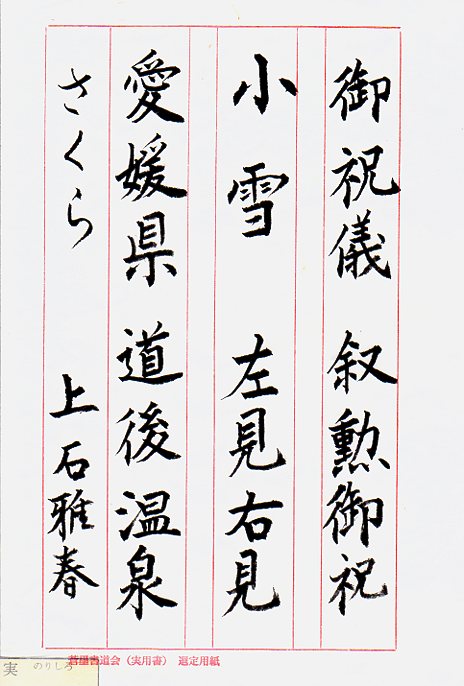 御祝儀 叙勲御祝
小雪 左見右見
愛媛県 道後温泉
さくら 上石雅春
書道会（実用書） 選定用紙
実 のりしろ